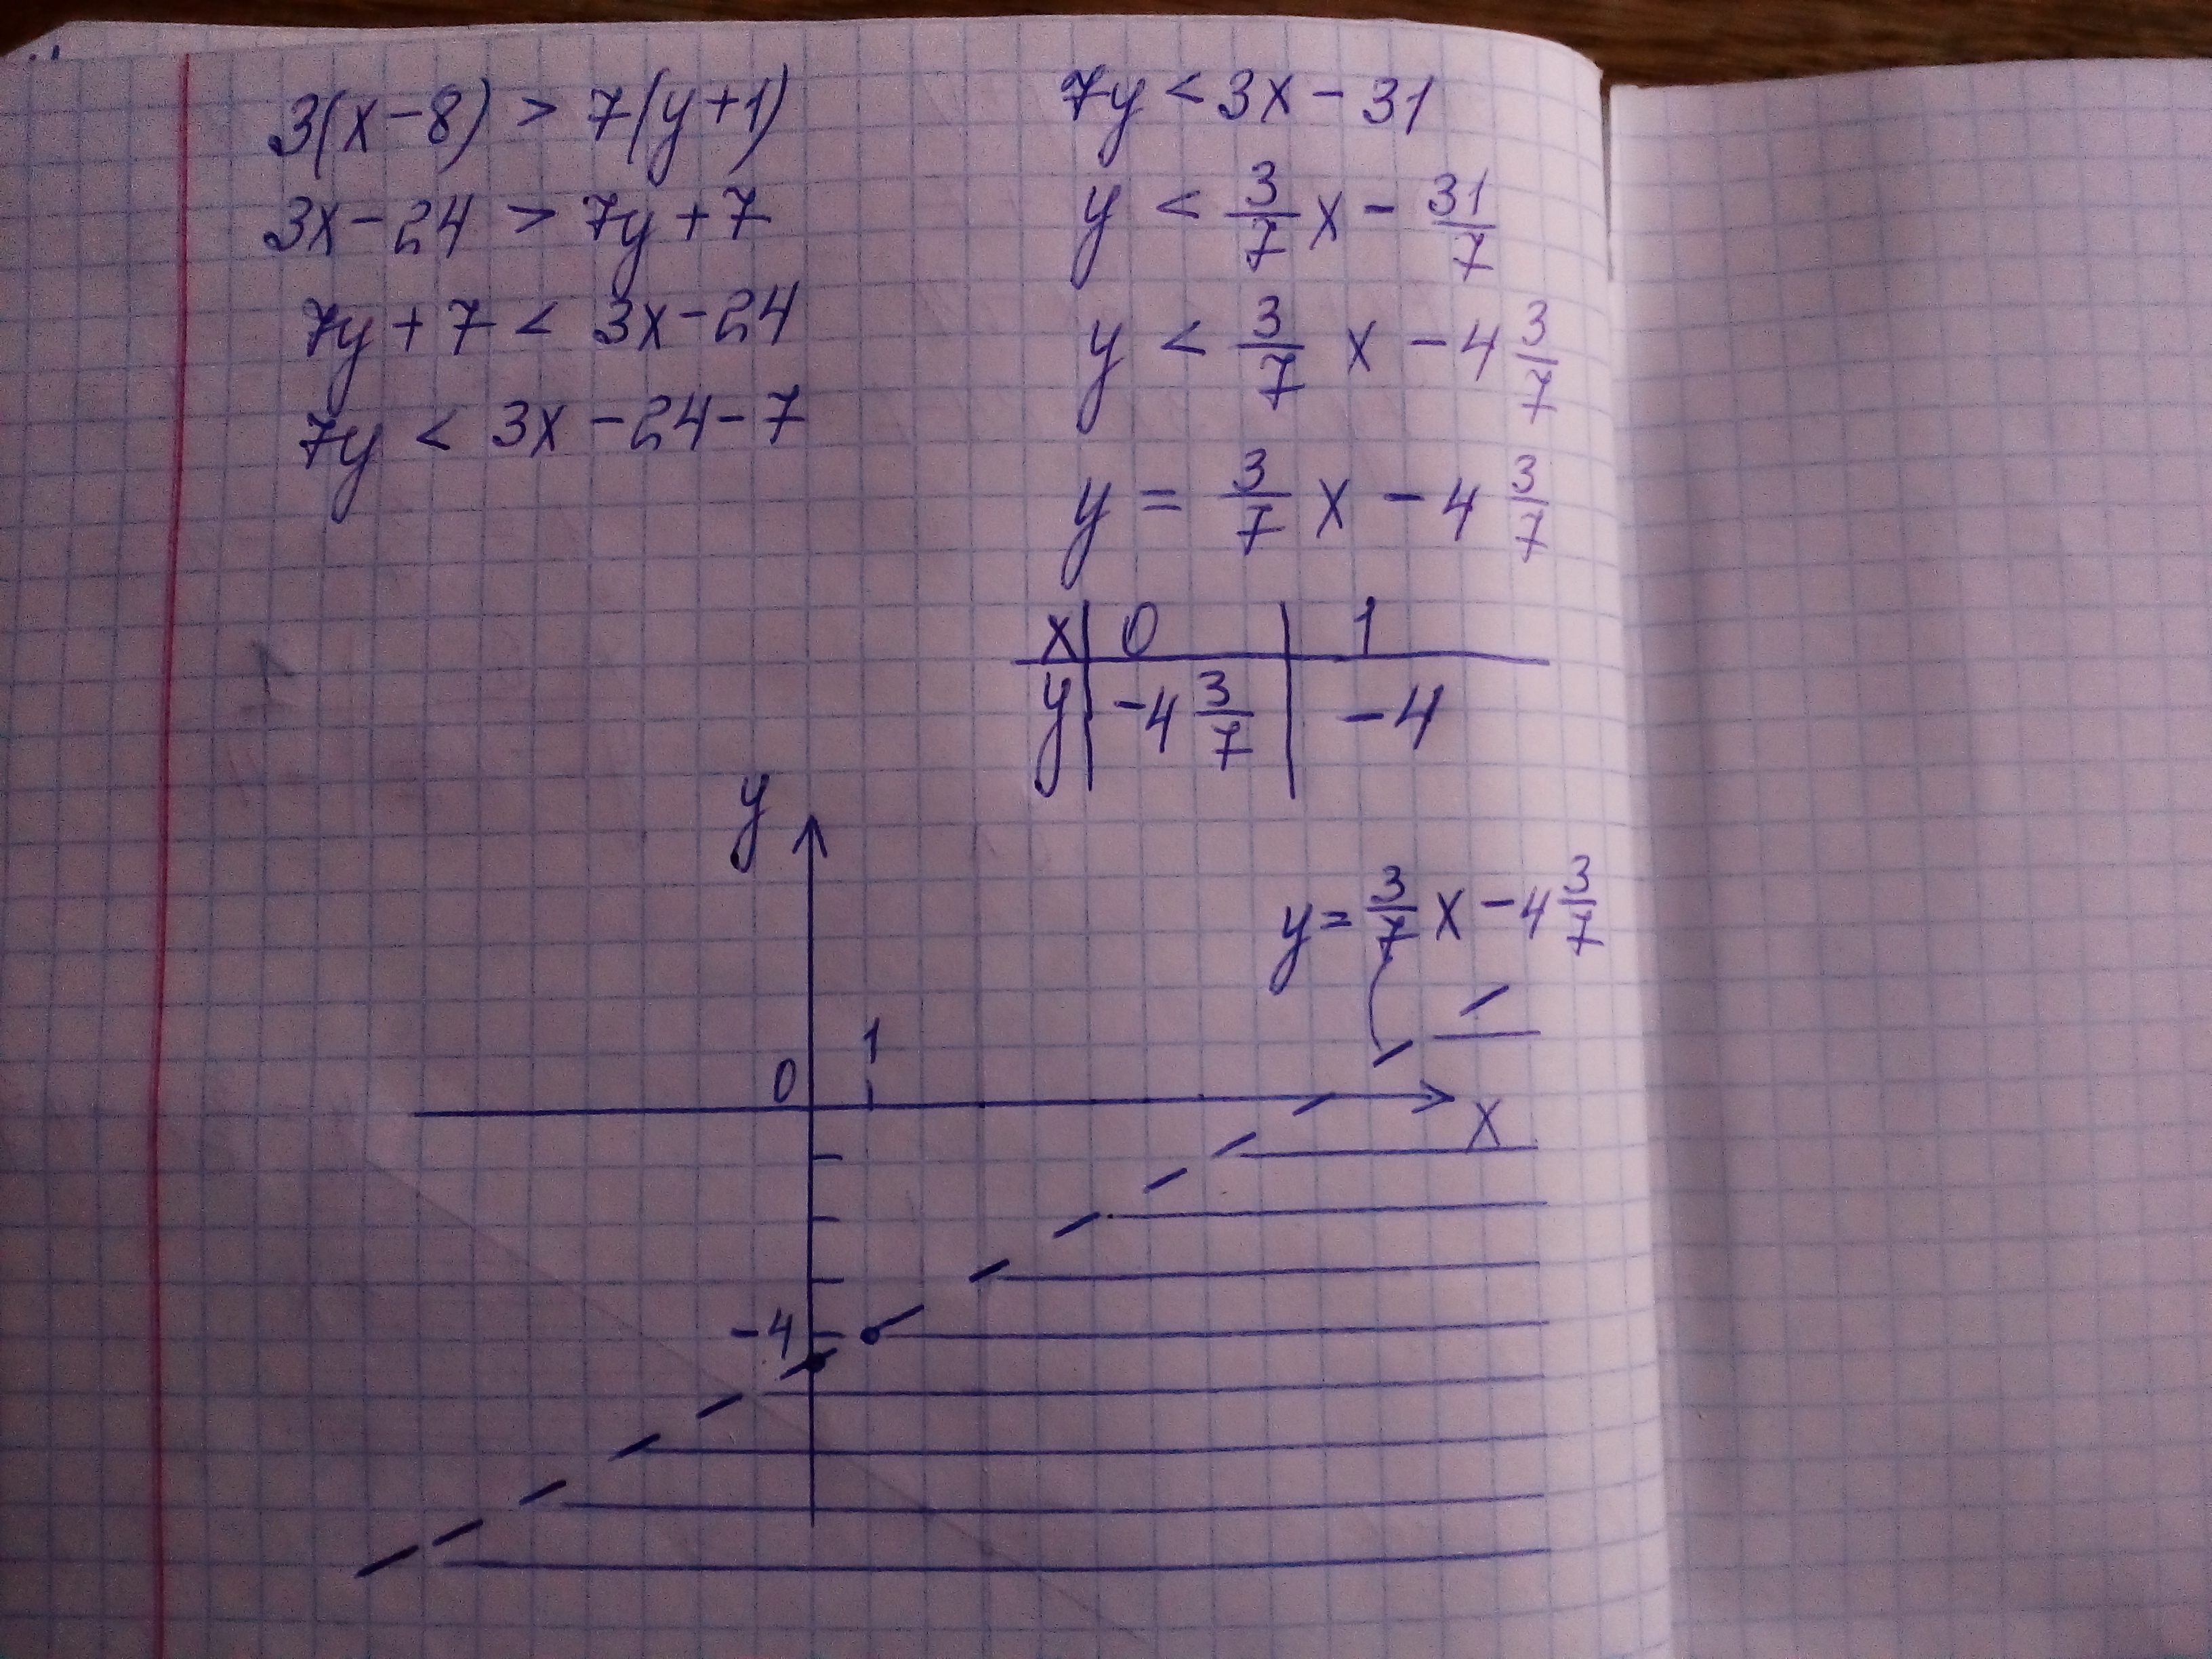 3(x-8) > 7(y+1)
3x-24 > 7y+7
7y+7 < 3x-24
7y < 3x-24-7
7y < 3x-31
y < 3/7 x - 31/7
y < 3/7 x - 4 3/7
y = 3/7 x - 4 3/7
x | 0 | 1
y | -4 3/7 | -4
y
y = 3/7 x - 4 3/7
0 1
x
-4